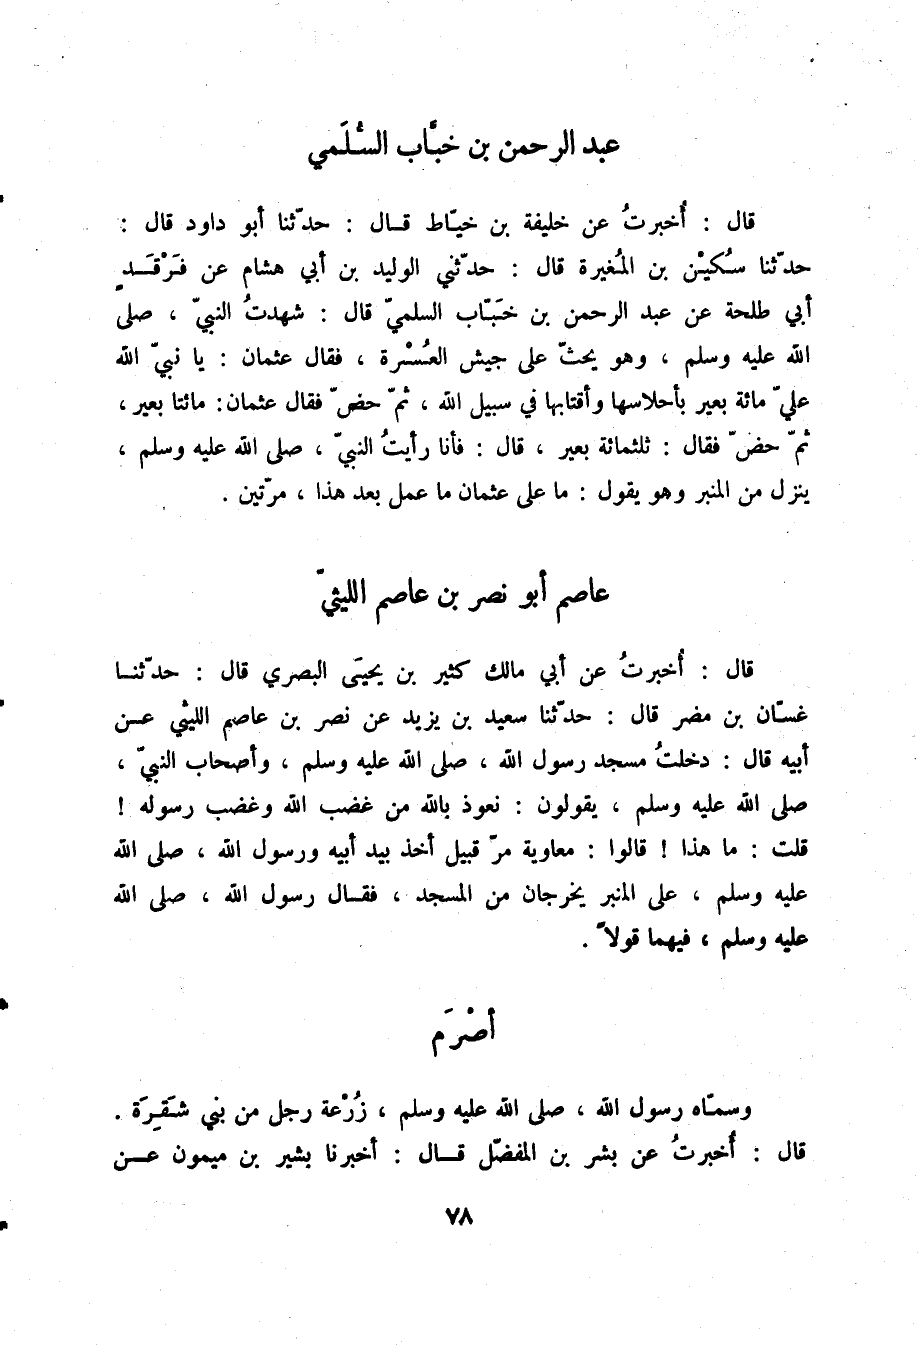 عبد الرحمن بن خبَّاب السُّلَمي
قال : أُخبرتُ عن خليفة بن خيّاط قال : حدّثنا أبو داود قال :
حدّثنا سُكَيْن بن المُغيرة قال : حدّثني الوليد بن أبي هشام عن فَرْقَدٍ
أبي طلحة عن عبد الرحمن بن خَبّاب السلميّ قال : شهدتُ النبيّ ، صلى
الله عليه وسلم ، وهو يحثّ على جيش العُسْرة ، فقال عثمان : يا نبيّ الله
عليّ مائة بعير بأحلاسها وأقتابها في سبيل الله ، ثمّ حضّ فقال عثمان: مائتا بعير ،
ثمّ حضّ فقال : ثلثمائة بعير ، قال : فأنا رأيتُ النبيّ ، صلى الله عليه وسلم ،
ينزل من المنبر وهو يقول : ما على عثمان ما عمل بعد هذا ، مرّتين .
عاصم أبو نصر بن عاصم الليثيّ
قال : أُخبرتُ عن أبي مالك كثير بن يحيَى البصري قال : حدّثنا
غسّان بن مضر قال : حدّثنا سعيد بن يزيد عن نصر بن عاصم الليثي عن
أبيه قال : دخلتُ مسجد رسول الله ، صلى الله عليه وسلم ، وأصحاب النبيّ ،
صلى الله عليه وسلم ، يقولون : نعوذ بالله من غضب الله وغضب رسوله !
قلت : ما هذا ! قالوا : معاوية مرّ قبيل أخذ بيد أبيه ورسول الله ، صلى الله
عليه وسلم ، على المنبر يخرجان من المسجد ، فقال رسول الله ، صلى الله
عليه وسلم ، فيهما قولاً .
أصْرَم
وسمّاه رسول الله ، صلى الله عليه وسلم ، زُرْعة رجل من بني شَقِرَة .
قال : أُخبرتُ عن بشر بن المفضّل قال : أخبرنا بشير بن ميمون عن
٧٨